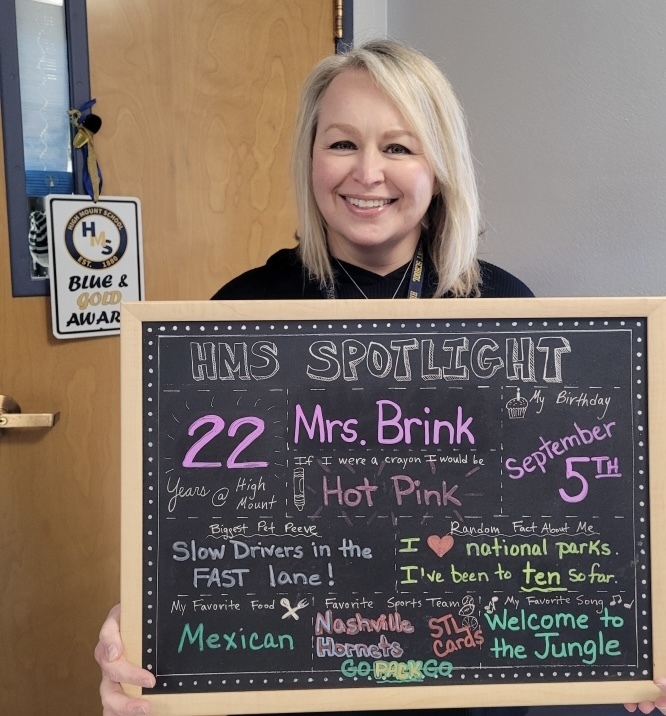 HIGH MOUNT SCHOOL
HMS
EST. 1890
BLUE &
GOLD
AWAR
HMS SPOTLIGHT
22
Years @ High
Mount
Mrs. Brink
If I were a crayon I would be
Hot Pink
My Birthday
September
5TH
Biggest Pet Peeve
Slow Drivers in the
FAST lane!
Random Fact About Me
I ❤ national parks.
I've been to ten so far.
My Favorite Food
Mexican
Favorite Sports Team
Nashville
Hornets
STL
Cards
GO PACK GO
My Favorite Song
Welcome to
the Jungle